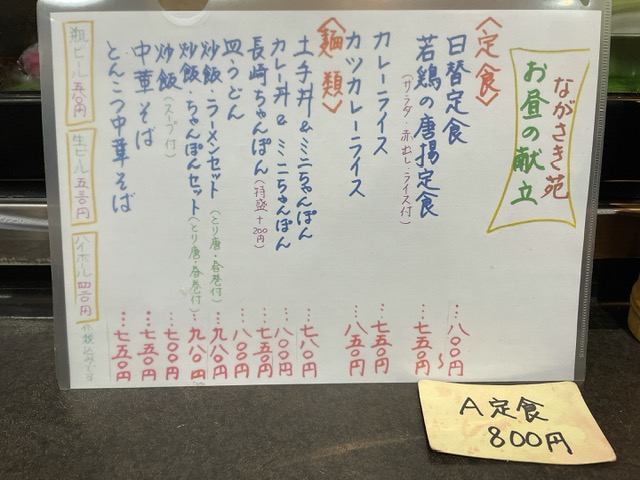 ながさき苑
お昼の献立
〈定食〉
日替定食 …八〇〇円〜
若鶏の唐揚定食 …七五〇円
(サラダ・赤出し・ライス付)
カレーライス …七五〇円
カツカレーライス …八五〇円
〈麺類〉
土手丼&ミニちゃんぽん …七八〇円
カレー丼&ミニちゃんぽん …八〇〇円
長崎ちゃんぽん(特盛+200円) …七五〇円
皿うどん …八〇〇円
炒飯・ラーメンセット(とり唐・春巻付) …九八〇円
炒飯・ちゃんぽんセット(とり唐・春巻付) …九八〇円
炒飯(スープ付) …七〇〇円
中華そば …七五〇円
とんこつ中華そば …七五〇円
瓶ビール 五八〇円
生ビール 五三〇円
ハイボール 四三〇円
A定食
800円